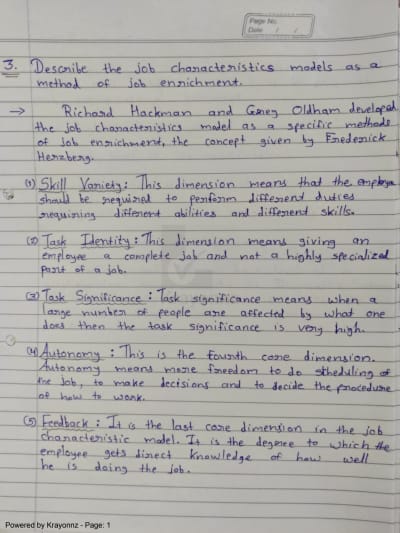 Page No.
Date / /
3. Describe the job characteristics models as a
method of job enrichment.
→ Richard Hackman and Greg Oldham developed
the job characteristics model as a specific methods
of job enrichment, the concept given by Frederick
Herzberg.
(1) Skill Variety: This dimension means that the employee
should be required to perform different duties
requiring different abilities and different skills.
(2) Task Identity: This dimension means giving an
employee a complete job and not a highly specialized
part of a job.
(3) Task Significance: Task significance means when a
large number of people are affected by what one
does then the task significance is very high.
(4) Autonomy: This is the fourth core dimension.
Autonomy means more freedom to do scheduling of
the job, to make decisions and to decide the procedure
of how to work.
(5) Feedback: It is the last core dimension in the job
characteristic model. It is the degree to which the
employee gets direct knowledge of how well
he is doing the job.
Powered by Krayonnz - Page: 1